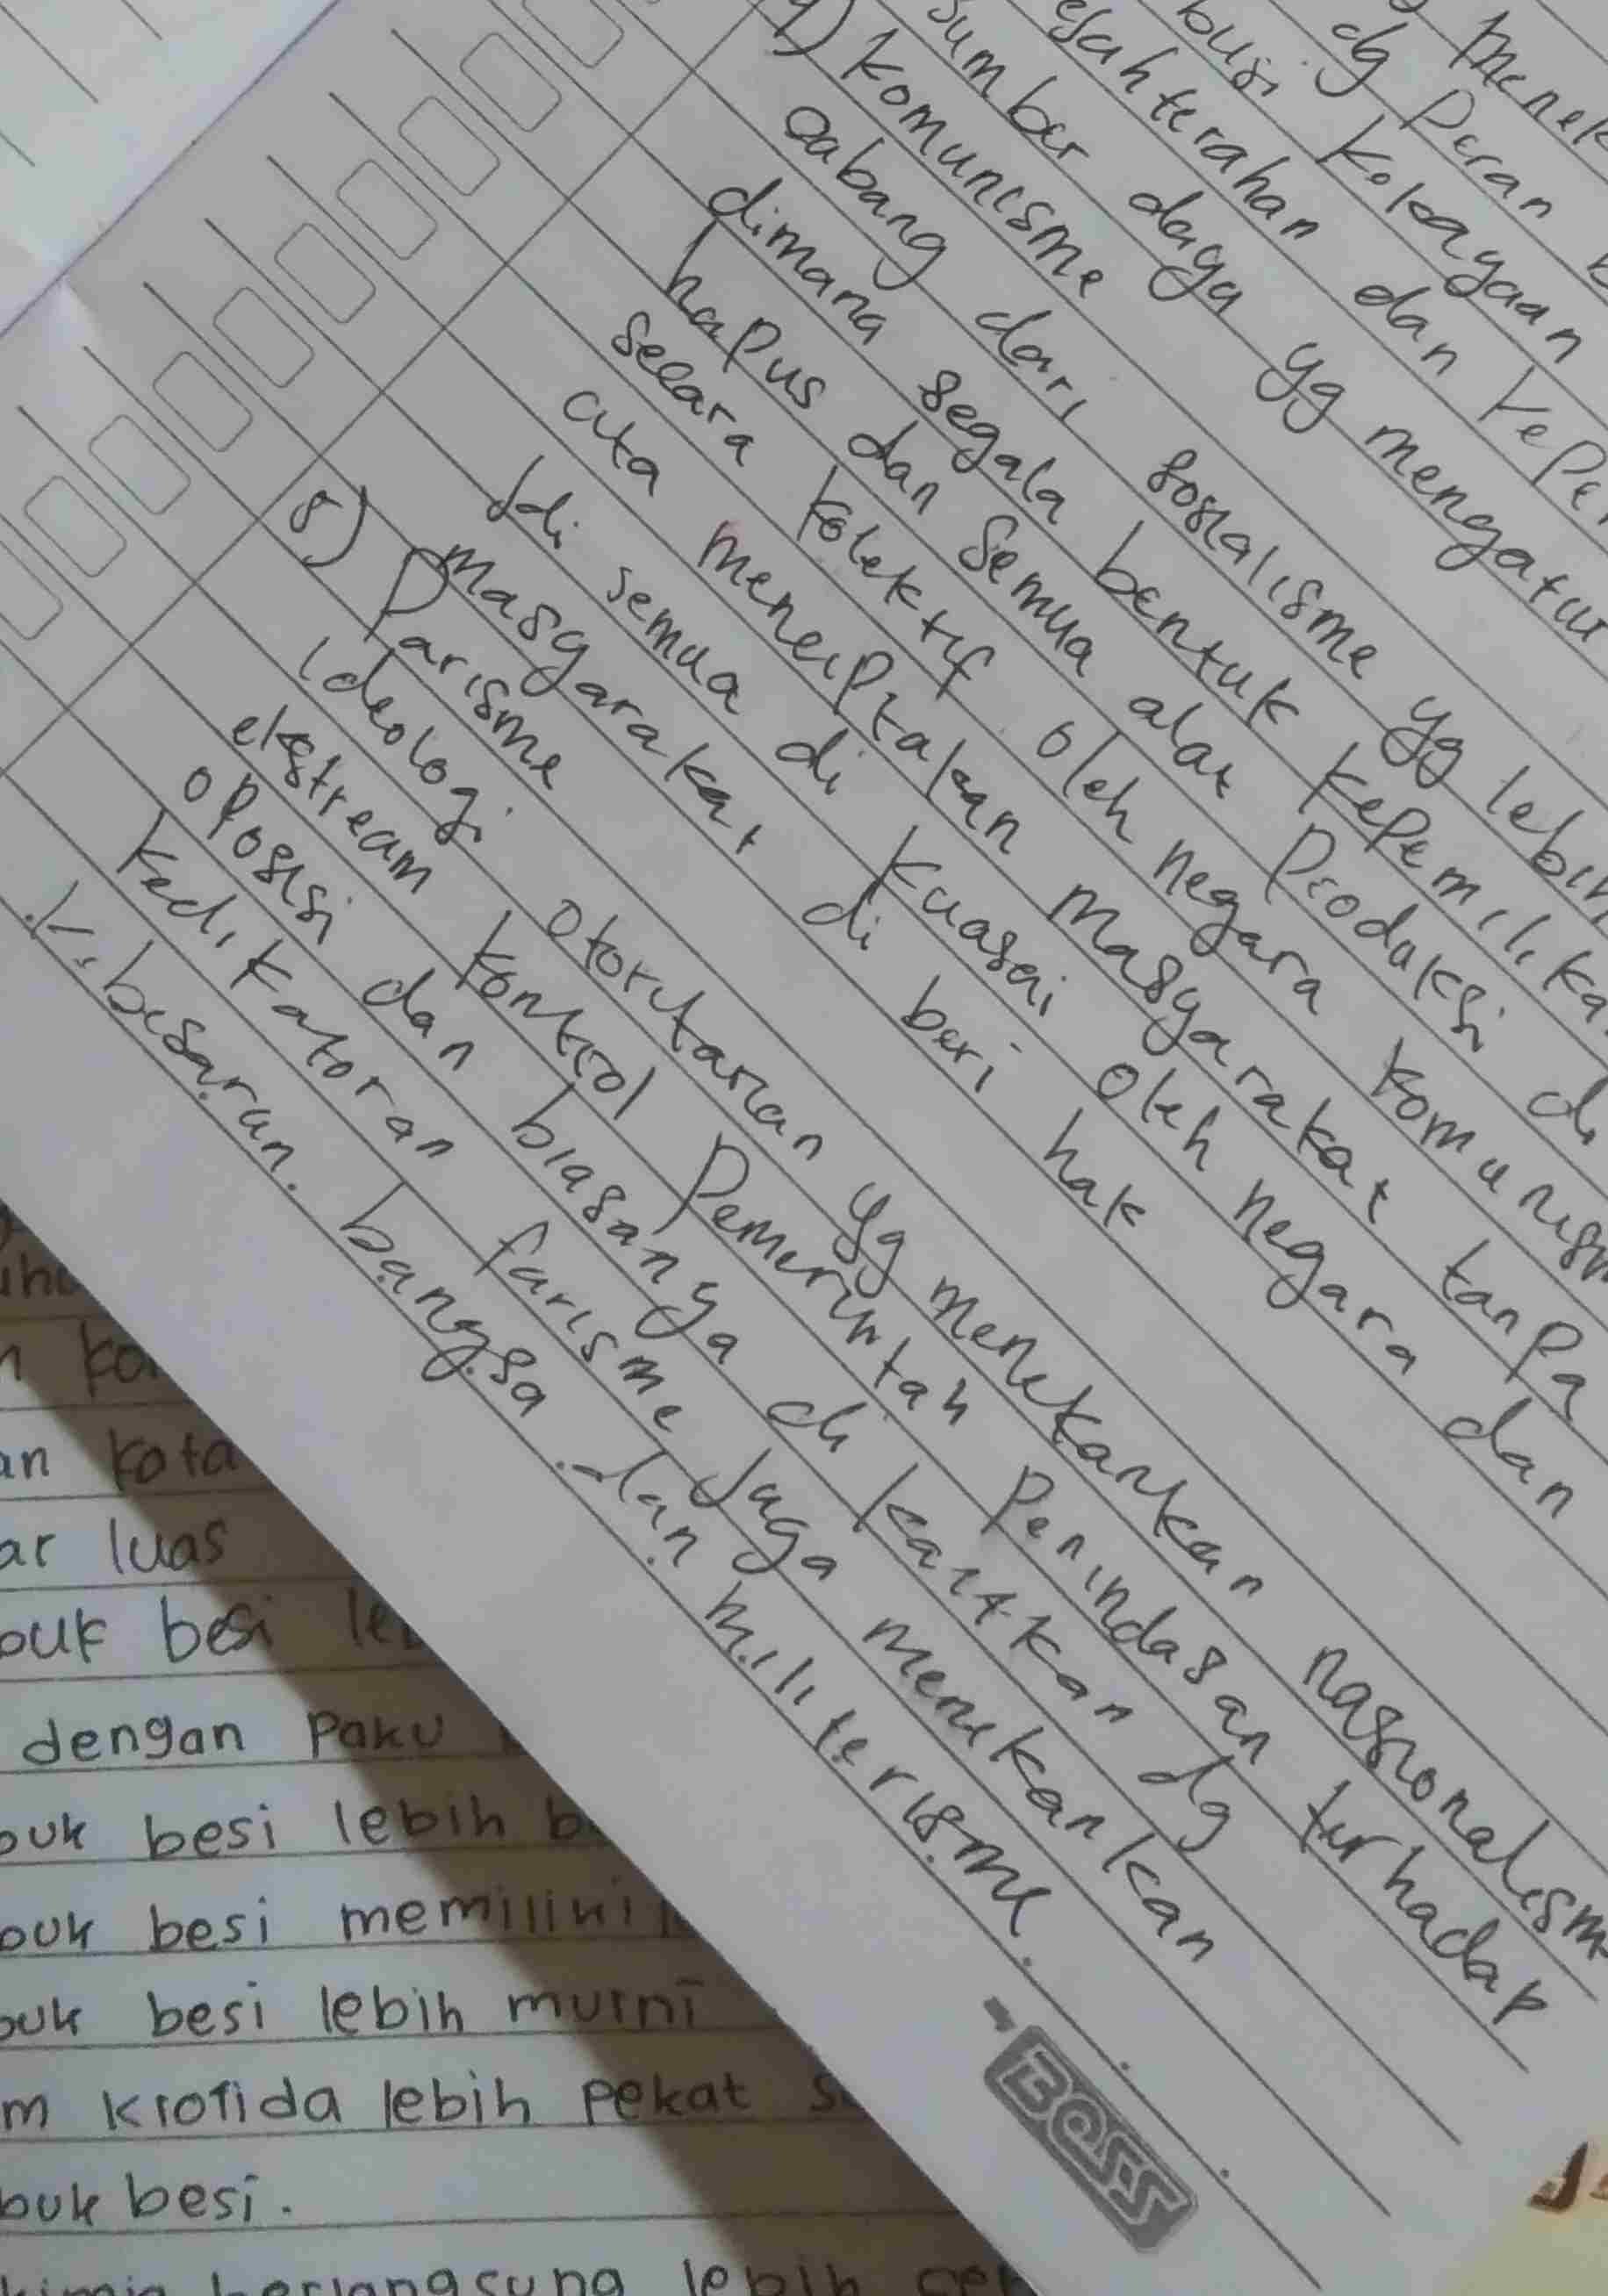 menek
dg peran b
busi kekayaan
esahterahan dan kepe
sumber daya yg mengatur
4) komunisme
cabang dari sosialisme yg lebih
dimana segala bentuk kepemilika
hapus dan semua alat produksi di
secara kolektif oleh negara komunism
cita menciptakan masyarakat tanpa
Jdi semua di kuasai oleh negara dan
masyarakat di beri hak
5) Parisme
Ideologi otoritarian yg menekankan nasionalism
ekstream kontrol pemerintah penindasan terhadap
oposisi dan biasanya di kaitkan dg
kedikatoran farisme juga menekankan
kebesaran bangsa dan militerisme.
BOSS
an kota
ar luas
buk besi le
dengan paku
buk besi lebih b
buk besi memiliki
buk besi lebih murni
m klorida lebih pekat s
buk besi.
berlangsung lebih cep